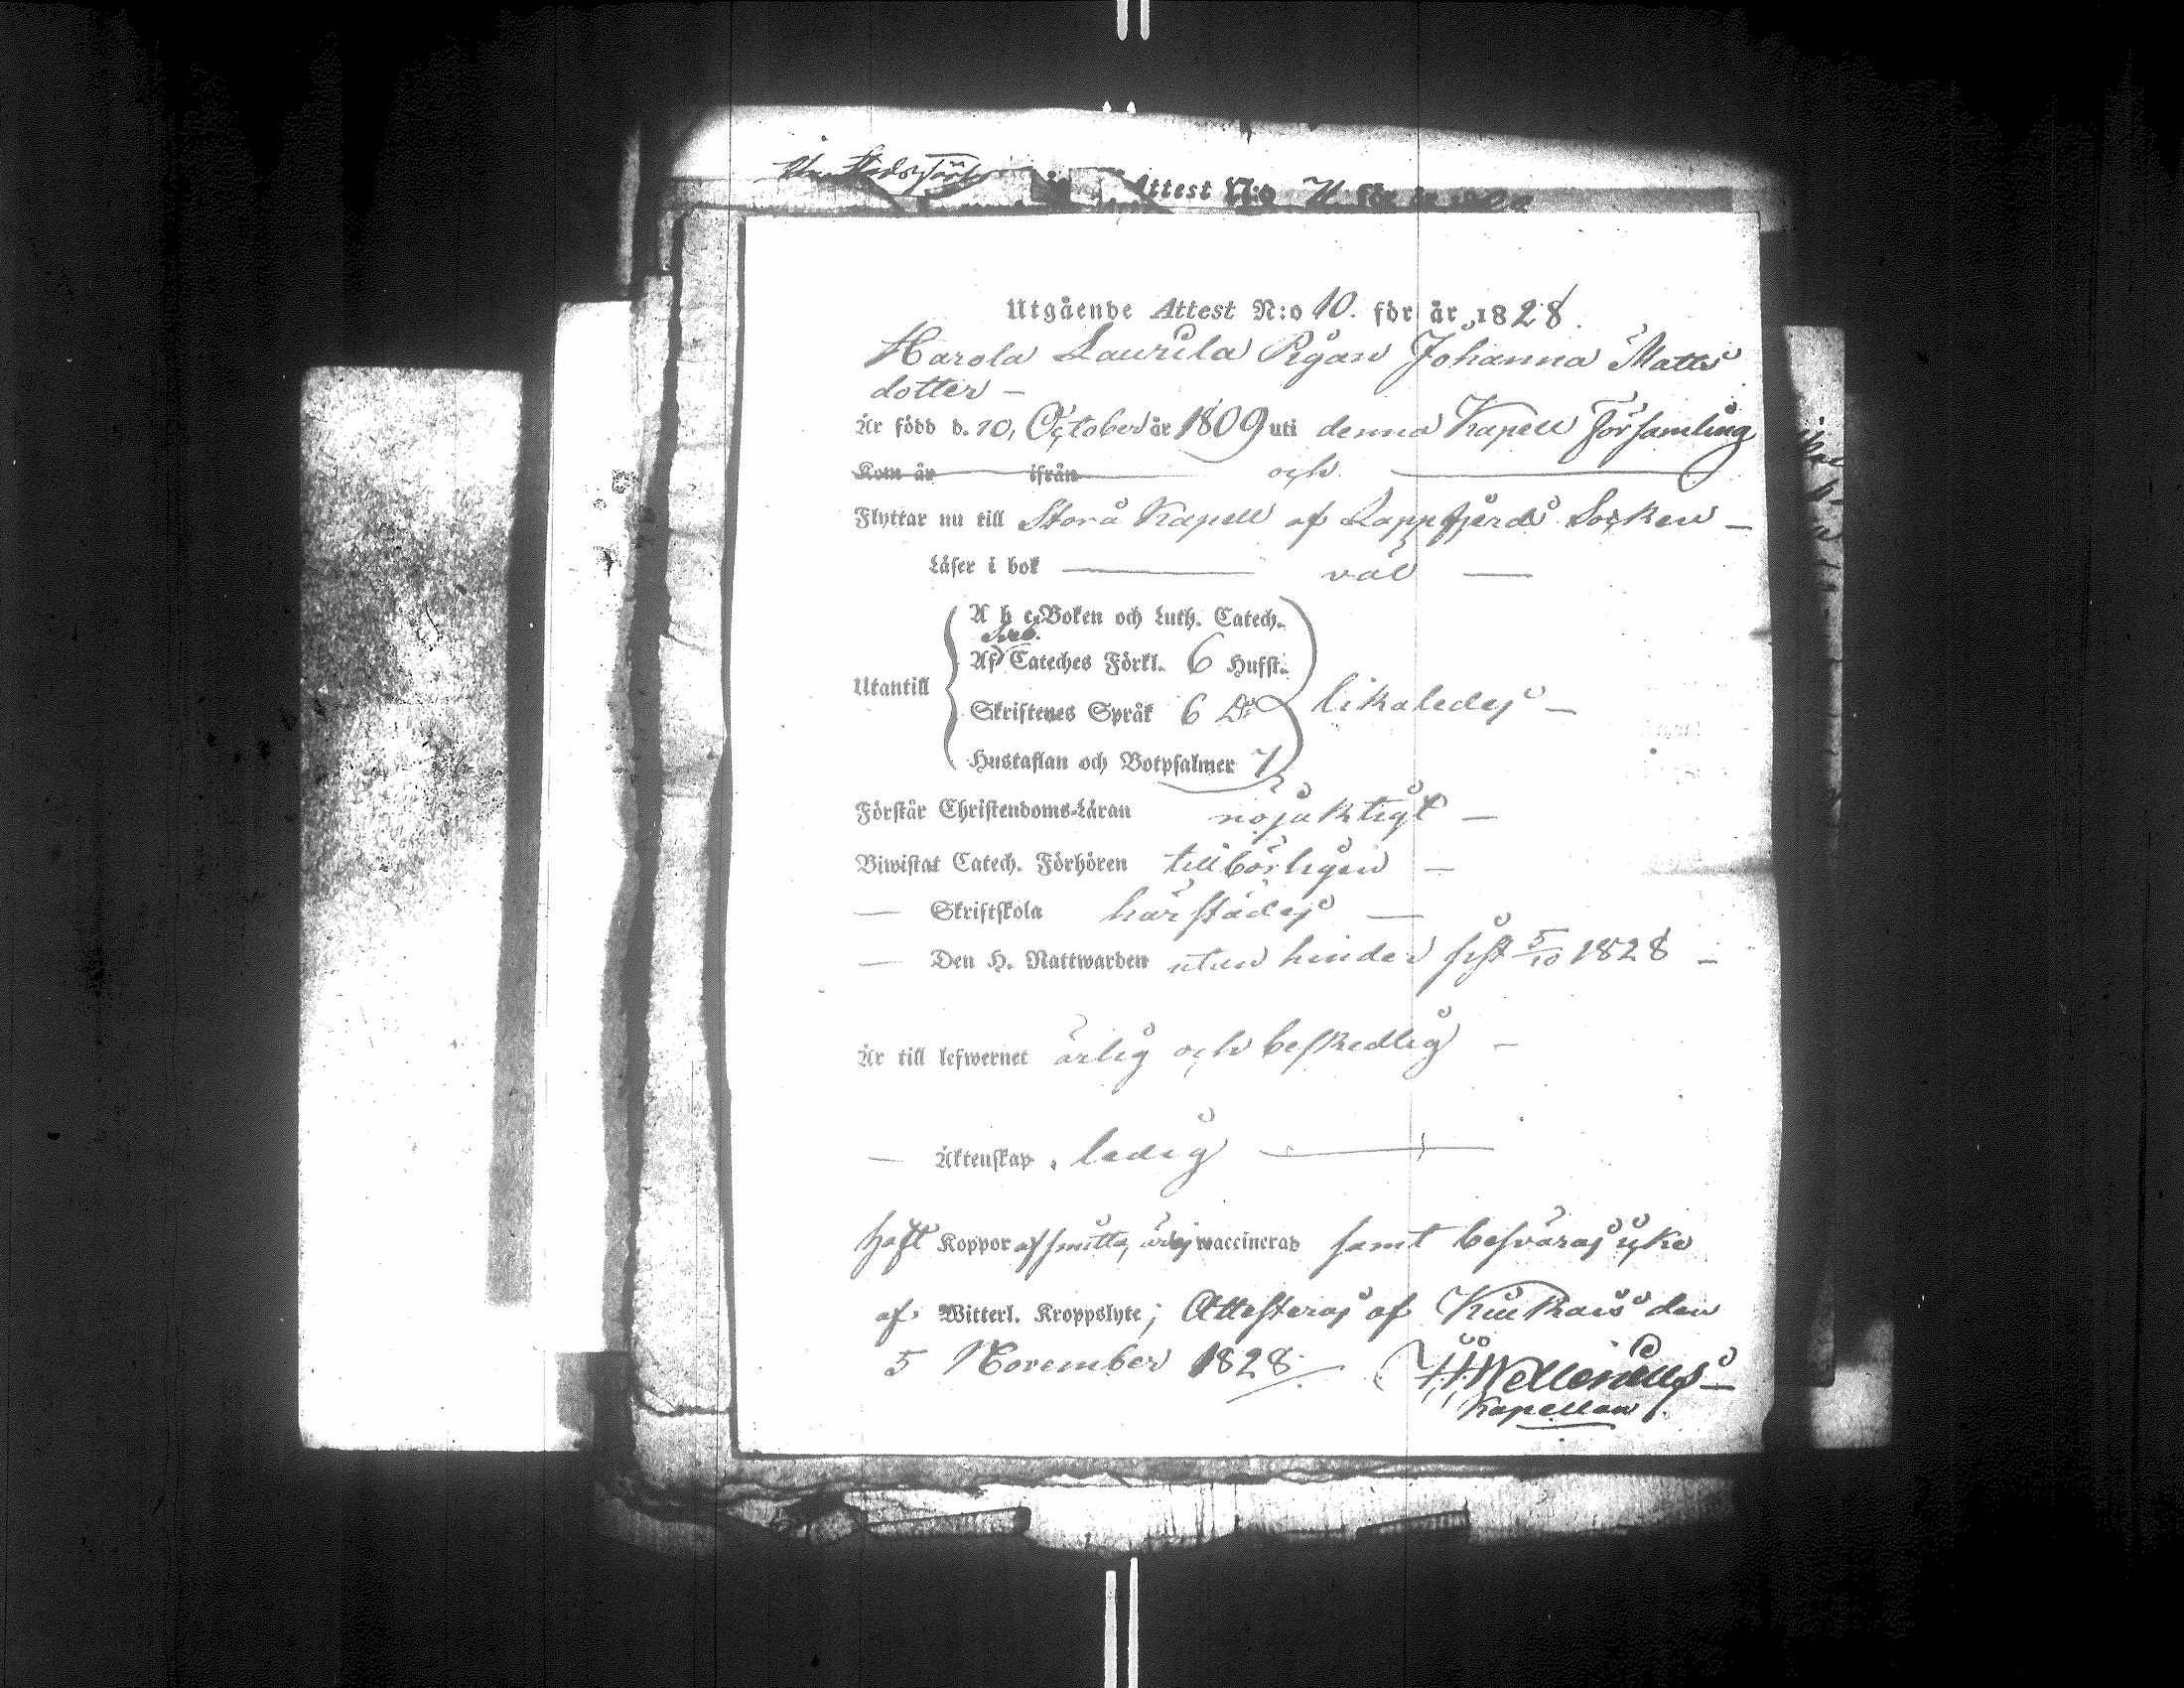 Attest N:o
Utgående Attest N:o 10. för år 1828.
Harola Laurila Pigan Johanna Matts
dotter –
Är född d. 10, October år 1809 uti denna Kapell Församling
Kom år ifrån och
Flyttar nu till Storå Kapell af Lappfjerds Socken –
Läser i bok väl –
A b c-Boken och Luth. Catech.
Af Cateches Förkl. 6 Hufst.
Utantill
Skriftenes Språk 6 Do likaledes –
Hustaflan och Botpsalmer 7
Förstår Christendoms-Läran nöjaktigt –
Biwistat Catech. Förhören tillbörligen –
– Skriftskola härstädes –
– Den H. Nattwarden utan hinder sist 5/10 1828 –
Är till lefwernet ärlig och beskedlig –
– Äktenskap, ledig
haft Koppor af smitta, är ej waccinerad samt besväras icke
af Witterl. Kroppslyte; Attesteras af Kauhais den
5 November 1828.
Kapellan.